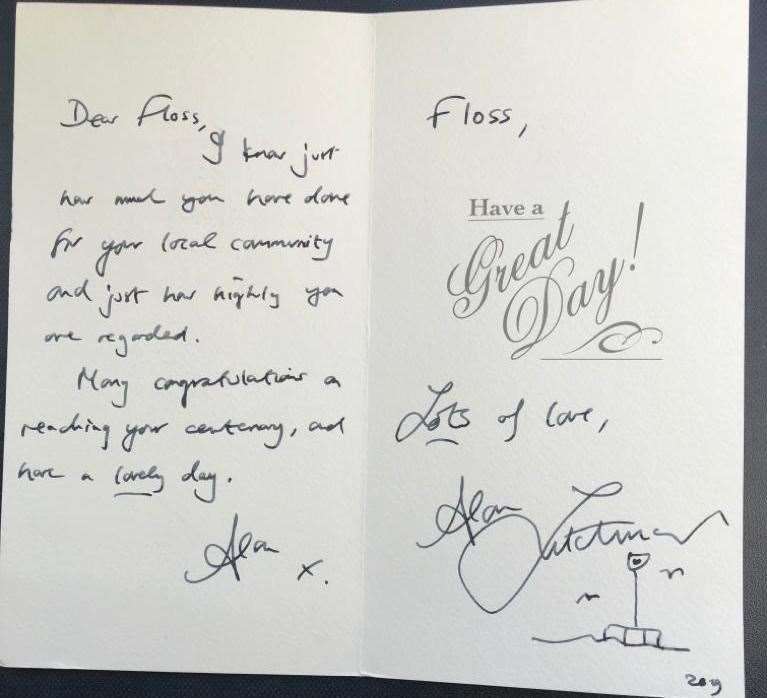 Dear Floss,
I know just
how much you have done
for your local community
and just how highly you
are regarded.
Many congratulations on
reaching your centenary, and
have a lovely day.
Alan x.
Floss,
Have a
Great
Day!
Lots of love,
Alan